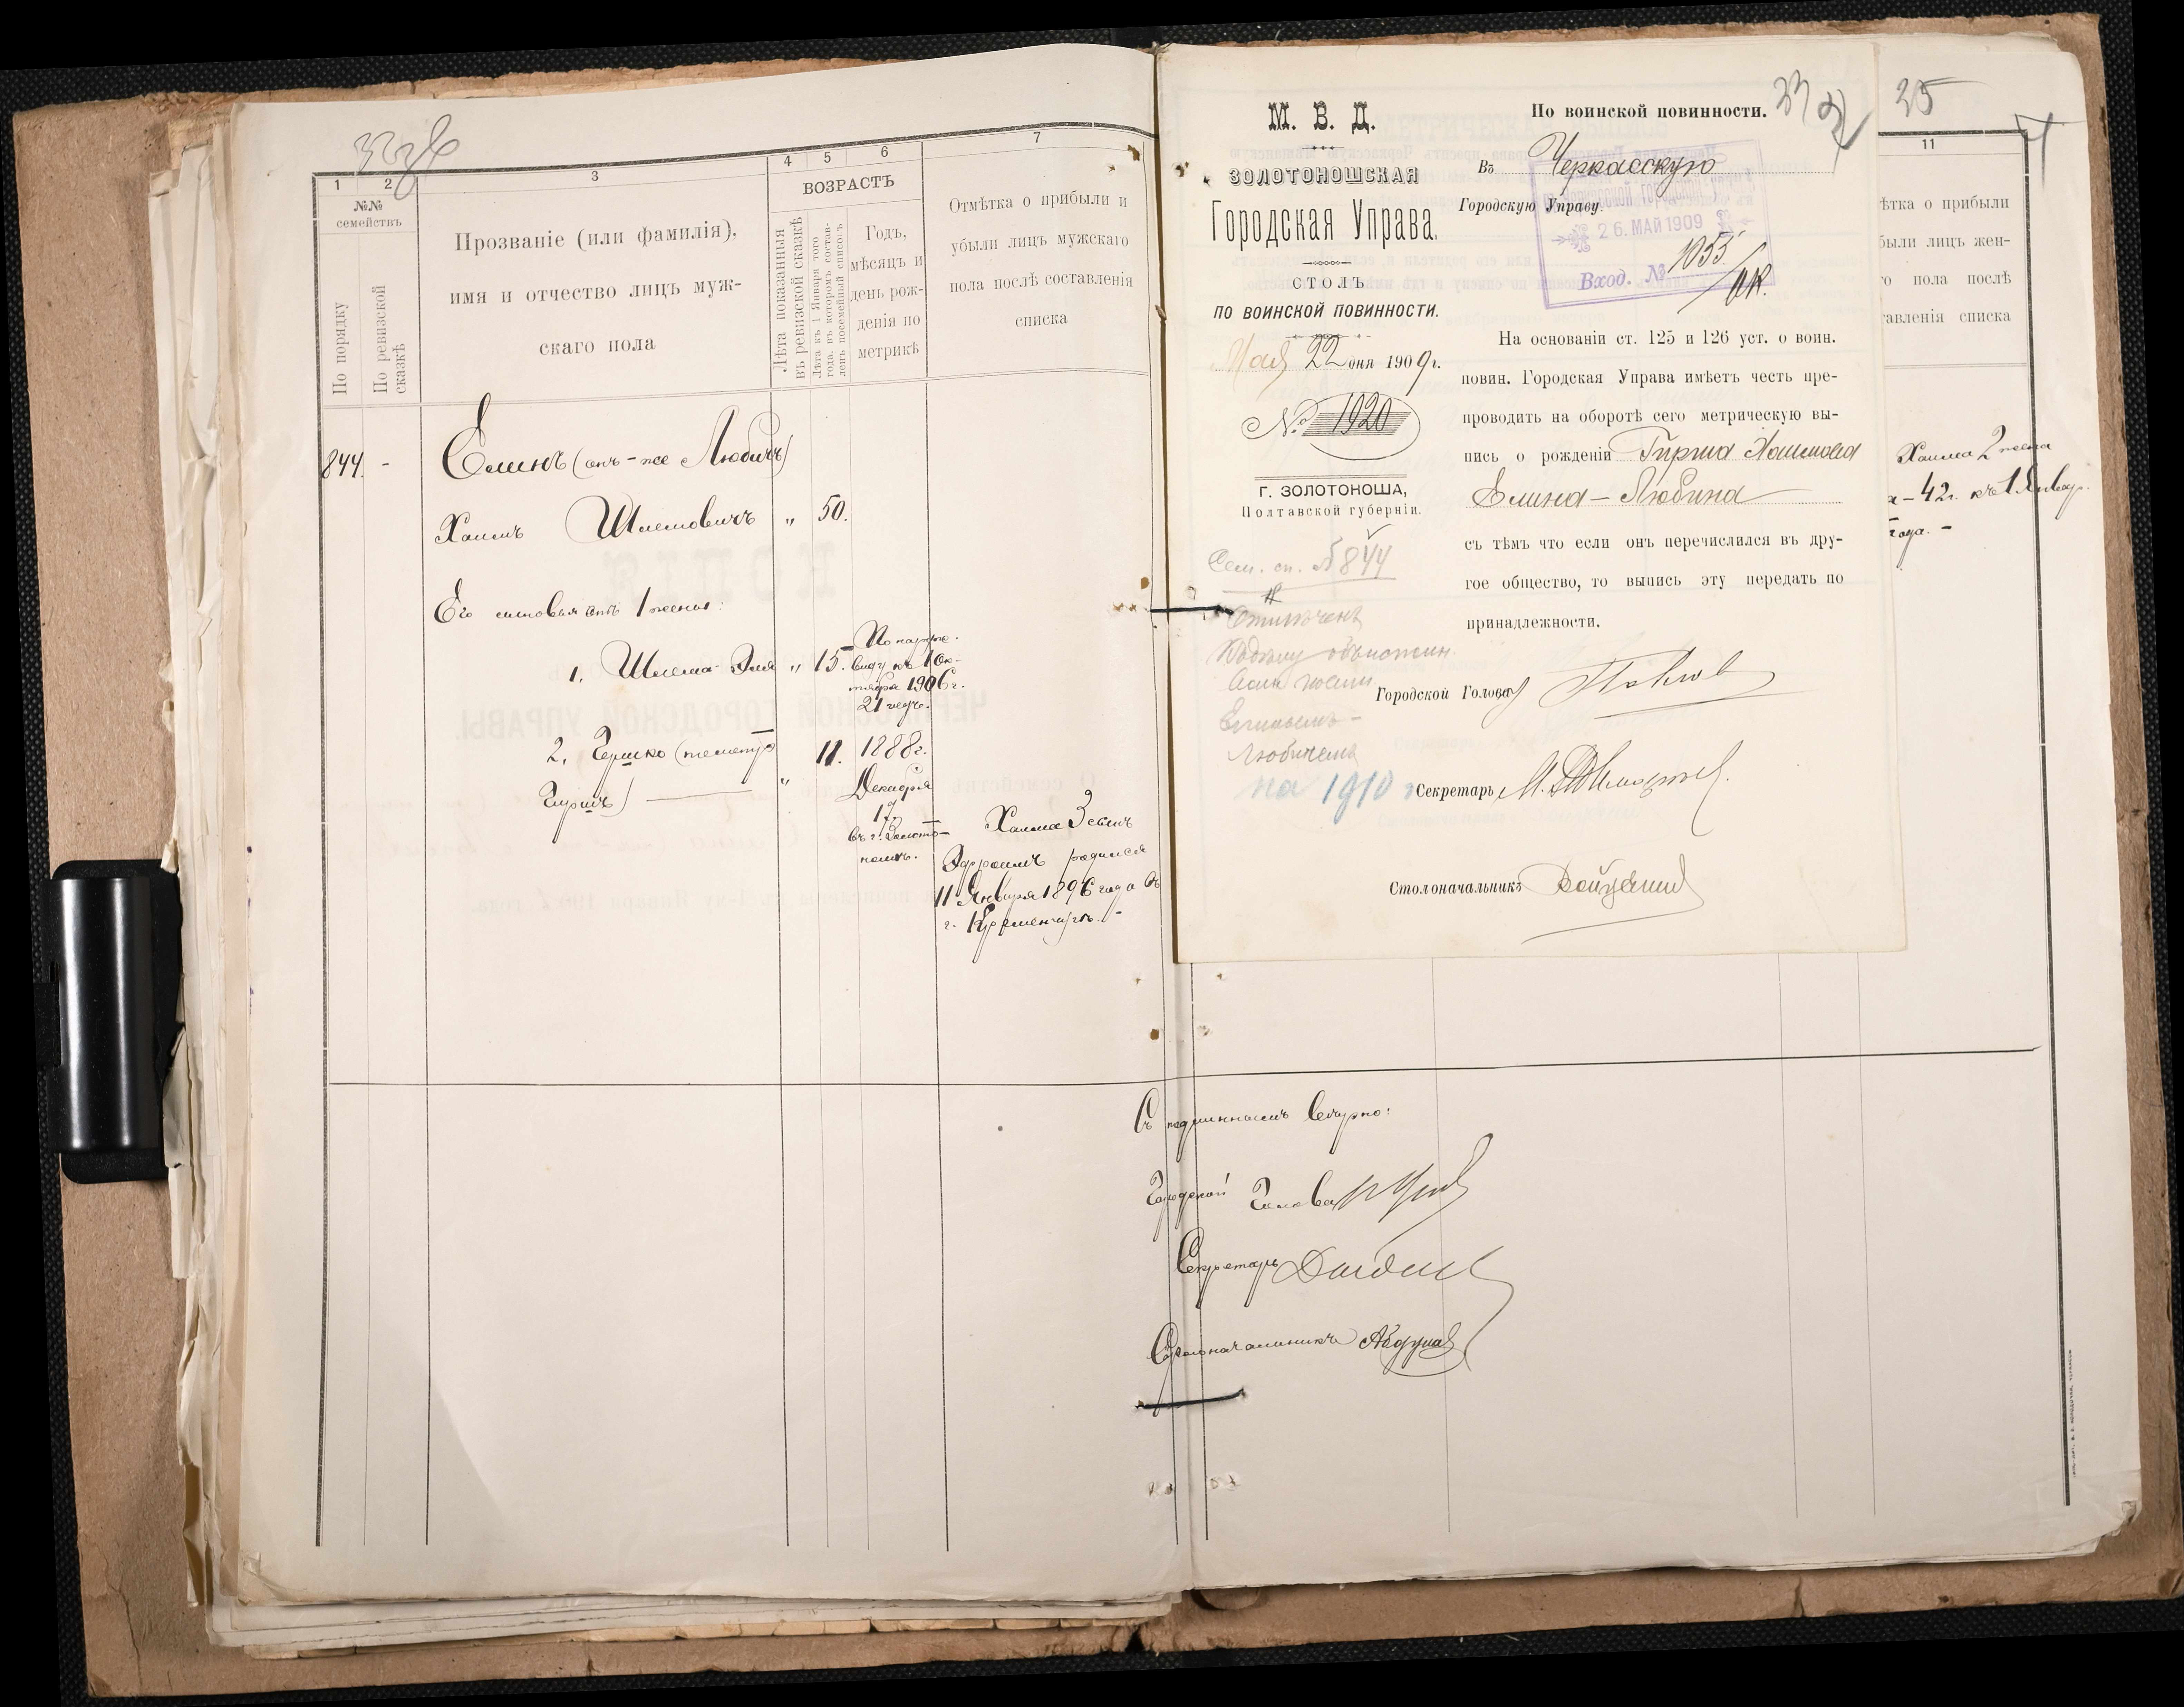 1
2
3
4
5
6
7
№№
семействъ
По порядку
По ревизской
сказкѣ
Прозваніе (или фамилія),
имя и отчество лицъ муж-
скаго пола
ВОЗРАСТЪ
Лѣта показанныя
въ ревизской сказкѣ
Лѣта къ 1 Января того
года, въ которомъ состав-
ленъ посемейный списокъ
Годъ,
мѣсяцъ и
день рож-
денія по
метрикѣ
Отмѣтка о прибыли и
убыли лицъ мужскаго
пола послѣ составленія
списка
844. -
Елинъ (онъ-же Любичъ)
Хаимъ Шлемовичъ " 50.
Его сыновья отъ 1 жены:
1. Шлема-Эля " 15.
По наруж.
виду къ 1 Ок-
тября 1906 г.
21 годъ.
2. Гершко (по метр.
Гиршъ) " 11.
1888 г.
Декабря
17
въ г. Золото-
ношѣ.
Хаима 3 сынъ
Эфроимъ родился
11 Января 1896 года въ
г. Кременчугѣ. -
М. В. Д.
ЗОЛОТОНОШСКАЯ
Городская Управа.
СТОЛЪ
ПО ВОИНСКОЙ ПОВИННОСТИ.
Мая 22 дня 1909 г.
№ 1920
Г. ЗОЛОТОНОША,
Полтавской губерніи.
Сем. сп. № 844
Отмѣченъ
Елинымъ-
Любичемъ
на 1910 г
По воинской повинности.
Въ Черкасскую
Городскую Управу.
26. МАЙ 1909
Вход. № 1055
На основаніи ст. 125 и 126 уст. о воин.
повин. Городская Управа имѣетъ честь пре-
проводить на оборотѣ сего метрическую вы-
пись о рожденіи Гирша Хаимова
Елина-Любина
съ тѣмъ что если онъ перечислился въ дру-
гое общество, то выпись эту передать по
принадлежности.
Городской Голова
Секретарь
Столоначальникъ
25
11
ѣтка о прибыли
были лицъ жен-
го пола послѣ
тавленія списка
Хаима 2 жена
а - 42 г. къ 1 Январ.
года. -
Съ подлиннымъ вѣрно:
Городской Голова
Секретарь
Столоначальникъ